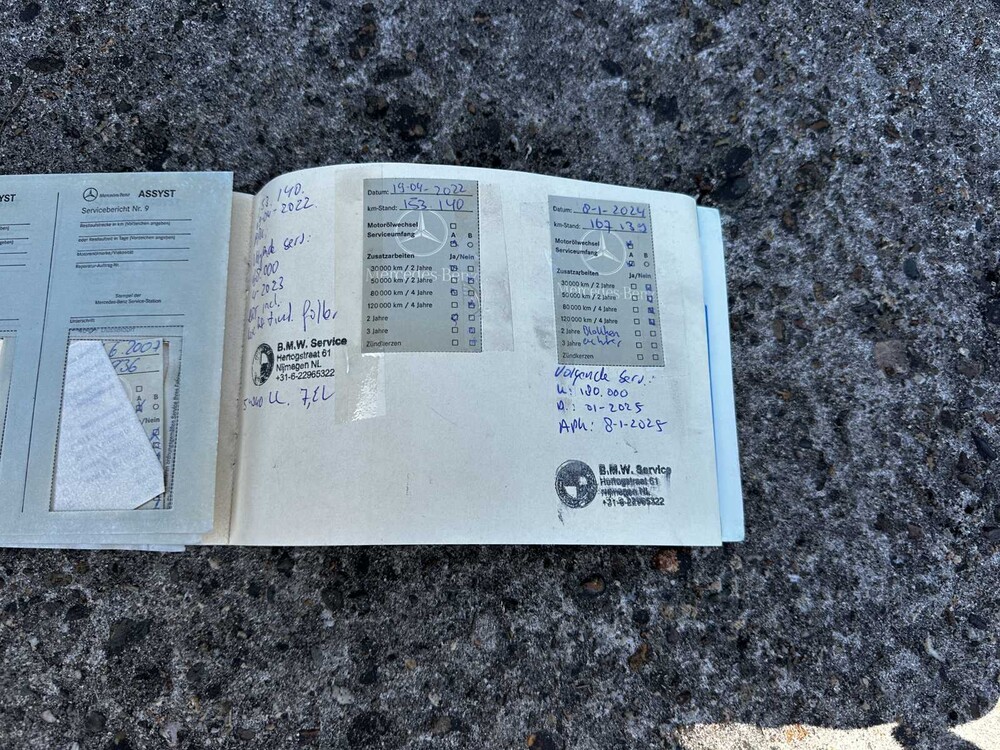 YST
Mercedes-Benz ASSYST
Servicebericht Nr. 9
Reparatur-Auftrag Nr.
Stempel der
Mercedes-Benz Service-Station
6.2007
36
A B
/Nein
140.
2022
000
2023
incl.
B.M.W. Service
Hertogstraat 61
Nijmegen NL
+31-6-22965322
7,5L
Datum: 19-04-2022
km-Stand: 153 140
Motorölwechsel
Serviceumfang A B
Zusatzarbeiten Ja/Nein
30 000 km / 2 Jahre
50 000 km / 2 Jahre
60 000 km / 4 Jahre
120 000 km / 4 Jahre
2 Jahre
3 Jahre
Zündkerzen
Mercedes Benz
Datum: 8-1-2024
km-Stand: 167 139
Motorölwechsel
Serviceumfang A B
Zusatzarbeiten Ja/Nein
30 000 km / 2 Jahre
50 000 km / 2 Jahre
60 000 km / 4 Jahre
120 000 km / 4 Jahre
2 Jahre Blokken
3 Jahre achter
Zündkerzen
Mercedes Benz
Volgende serv.:
K: 180.000
D.: 01-2025
APK: 8-1-2025
B.M.W. Service
Hertogstraat 61
Nijmegen NL
+31-6-22965322